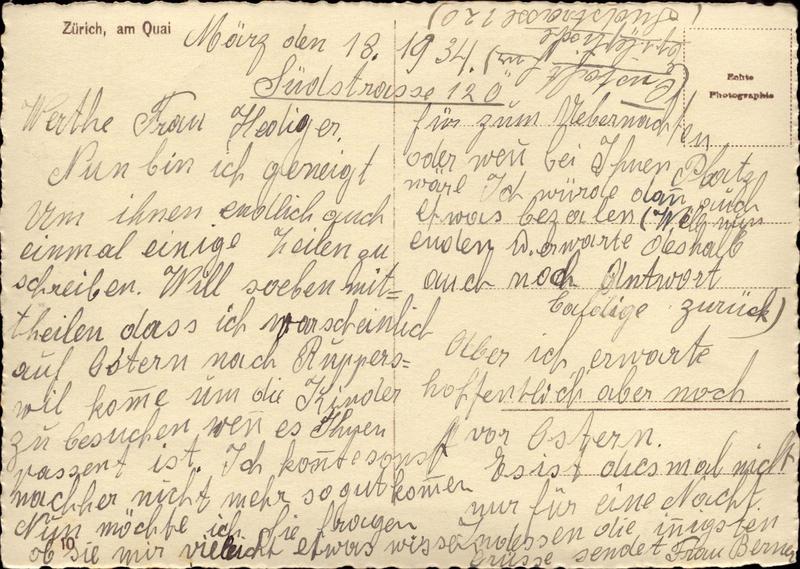 Zürich, am Quai
Echte
Photographie
März den 18. 1934.
Südstrasse 120
Werthe Frau Hediger.
Nun bin ich geneigt
Um ihnen endlich auch
einmal einige Zeilen zu
schreiben. Will soeben mit=
theilen dass ich warscheinlich
auf Ostern nach Ruppers=
wil kom̅e um die Kinder
zu besuchen wen̅ es Ihnen
passent ist. Ich kon̅te sonst
nachher nicht mehr so gut kom̅en
Nun möchte ich Sie fragen
ob sie mir vieleicht etwas wissen
10
für zum Uebernachten
oder wen̅ bei Ihnen Platz
wäre Ich würde dan̅ auch
etwas bezalen
enden u. erwarte deshalb
auch noch Antwort
baldige zurück)
Aber ich erwarte
hoffentlich aber noch
vor Ostern.
Es ist diesmal nicht
nur für eine Nacht.
Indessen die in̅igsten
Grüsse sendet Frau Berner
Zürich
(Südstrasse 120)